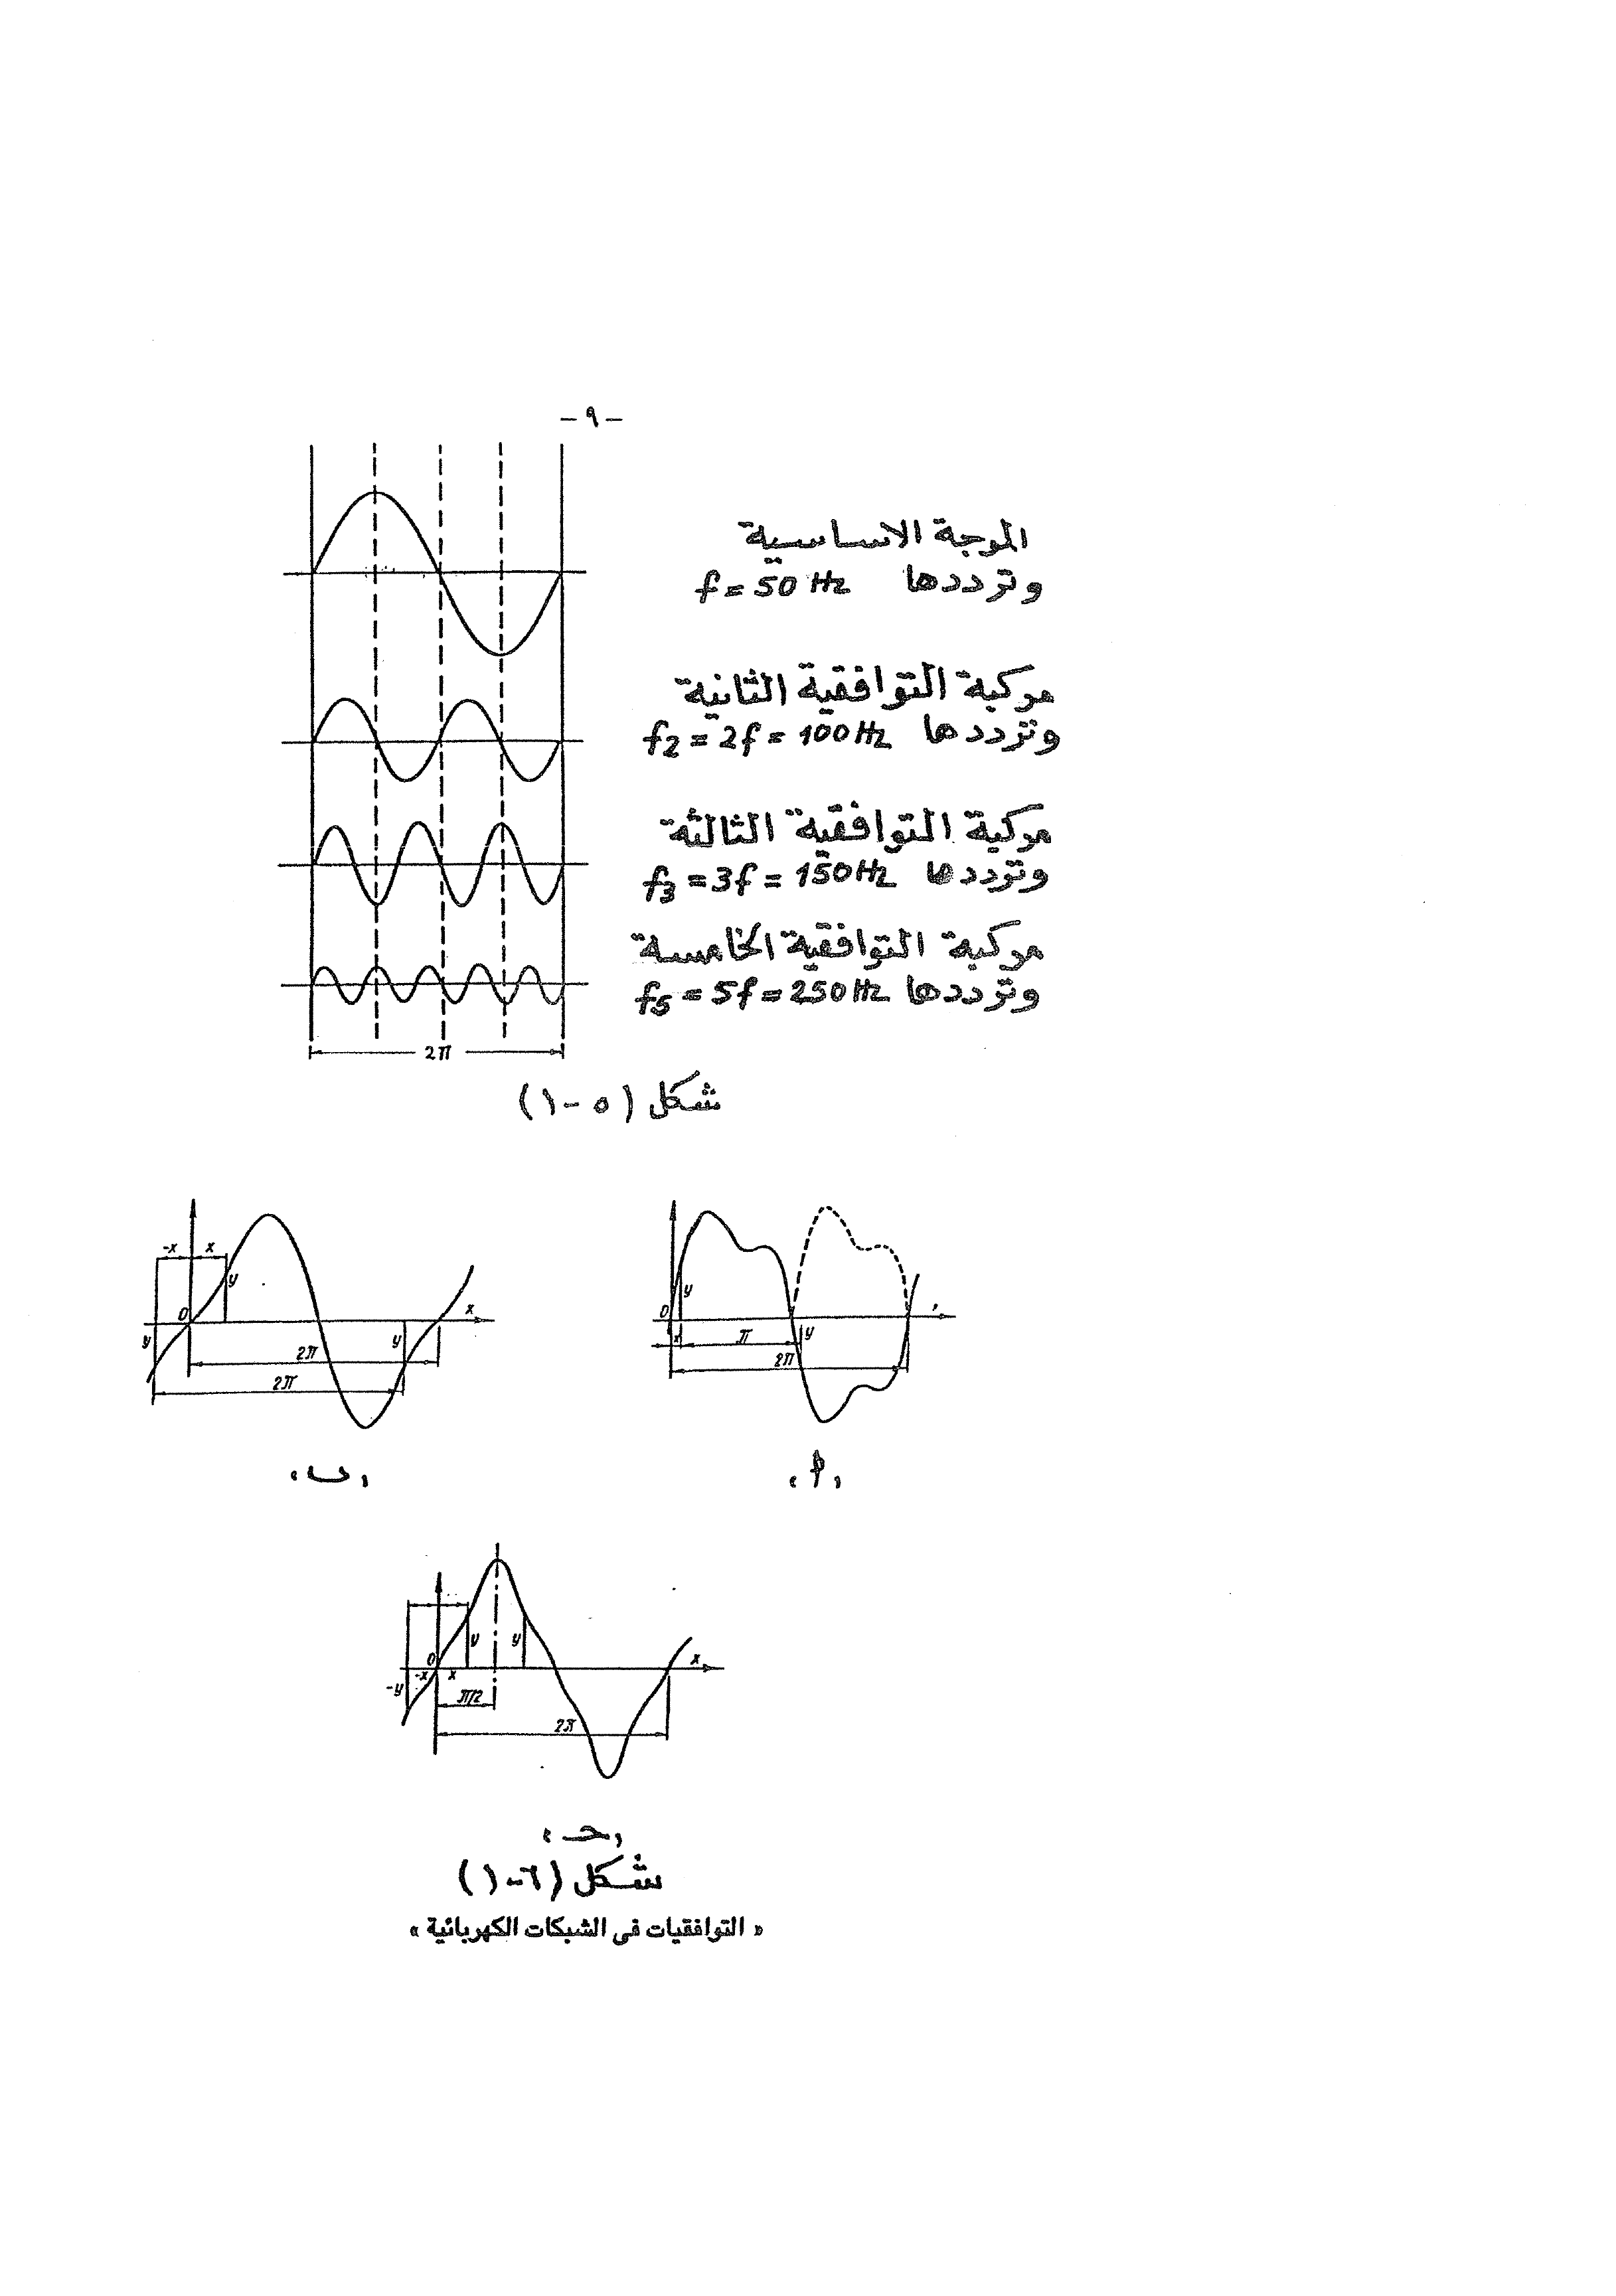 - ٩ -
الموجة الاساسية
وترددها f = 50 Hz
مركبة التوافقية الثانية
وترددها f2 = 2f = 100Hz
مركبة التوافقية الثالثة
وترددها f3 = 3f = 150Hz
مركبة التوافقية الخامسة
وترددها f5 = 5f = 250Hz
2π
شكل (٥-١)
y
0
x
π
y
2π
«أ»
-x x
y
0
x
y
y
2π
2π
«ب»
0
y
y
-x
x
x
-y
π/2
2π
«حـ»
شكل (٦-١)
« التوافقيات فى الشبكات الكهربائية »